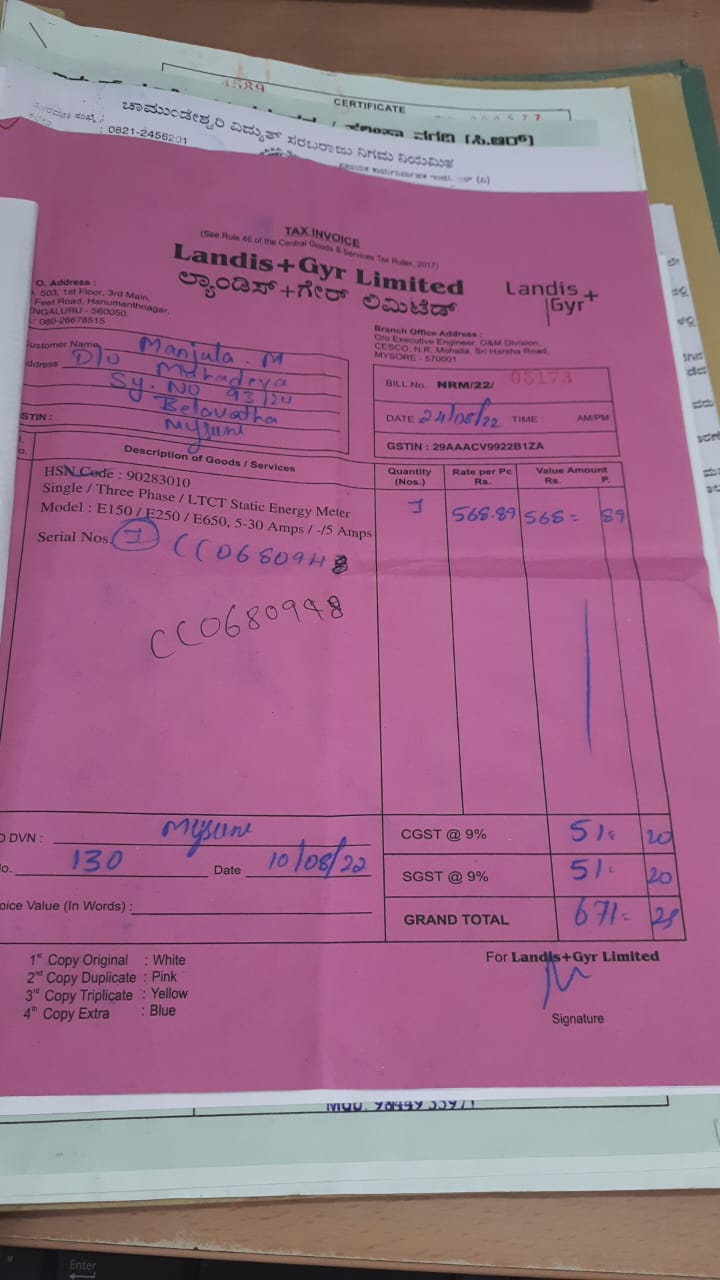 4589
CERTIFICATE
: 0821-2456201
ಚಾಮುಂಡೇಶ್ವರಿ ವಿದ್ಯುತ್ ಸರಬರಾಜು ನಿಗಮ ನಿಯಮಿತ
TAX INVOICE
(See Rule 46 of the Central Goods & Services Tax Rules, 2017)
Landis+Gyr Limited
ಲ್ಯಾಂಡಿಸ್+ಗೇರ್ ಲಿಮಿಟೆಡ್
Landis+
Gyr
O. Address :
503, 1st Floor, 3rd Main,
Feet Road, Hanumanthnagar,
ENGALURU - 560050.
: 080-26678515
Branch Office Address :
O/o Executive Engineer, O&M Division,
CESCO, N.R. Mohalla, Sri Harsha Road,
MYSORE - 570001
ustomer Name Manjula . M
ddress D/o Mahadeva
Sy. No 93/24
Belavatha
STIN : Mysuru
BILL No. NRM/22/ 05173
DATE 24/08/22 TIME : AM/PM
GSTIN : 29AAACV9922B1ZA
Description of Goods / Services
Quantity (Nos.)
Rate per Pc Rs.
Value Amount Rs. P.
HSN Code : 90283010
Single / Three Phase / LTCT Static Energy Meter
Model : E150 / E250 / E650, 5-30 Amps / -/5 Amps
1 568.89 568= 89
Serial Nos. 1 CC0680948
CC0680948
DVN : Mysuru
o. 130 Date 10/08/22
oice Value (In Words) :
CGST @ 9% 51. 20
SGST @ 9% 51. 20
GRAND TOTAL 671= 29
1st Copy Original : White
2nd Copy Duplicate : Pink
3rd Copy Triplicate : Yellow
4th Copy Extra : Blue
For Landis+Gyr Limited
Signature
Enter